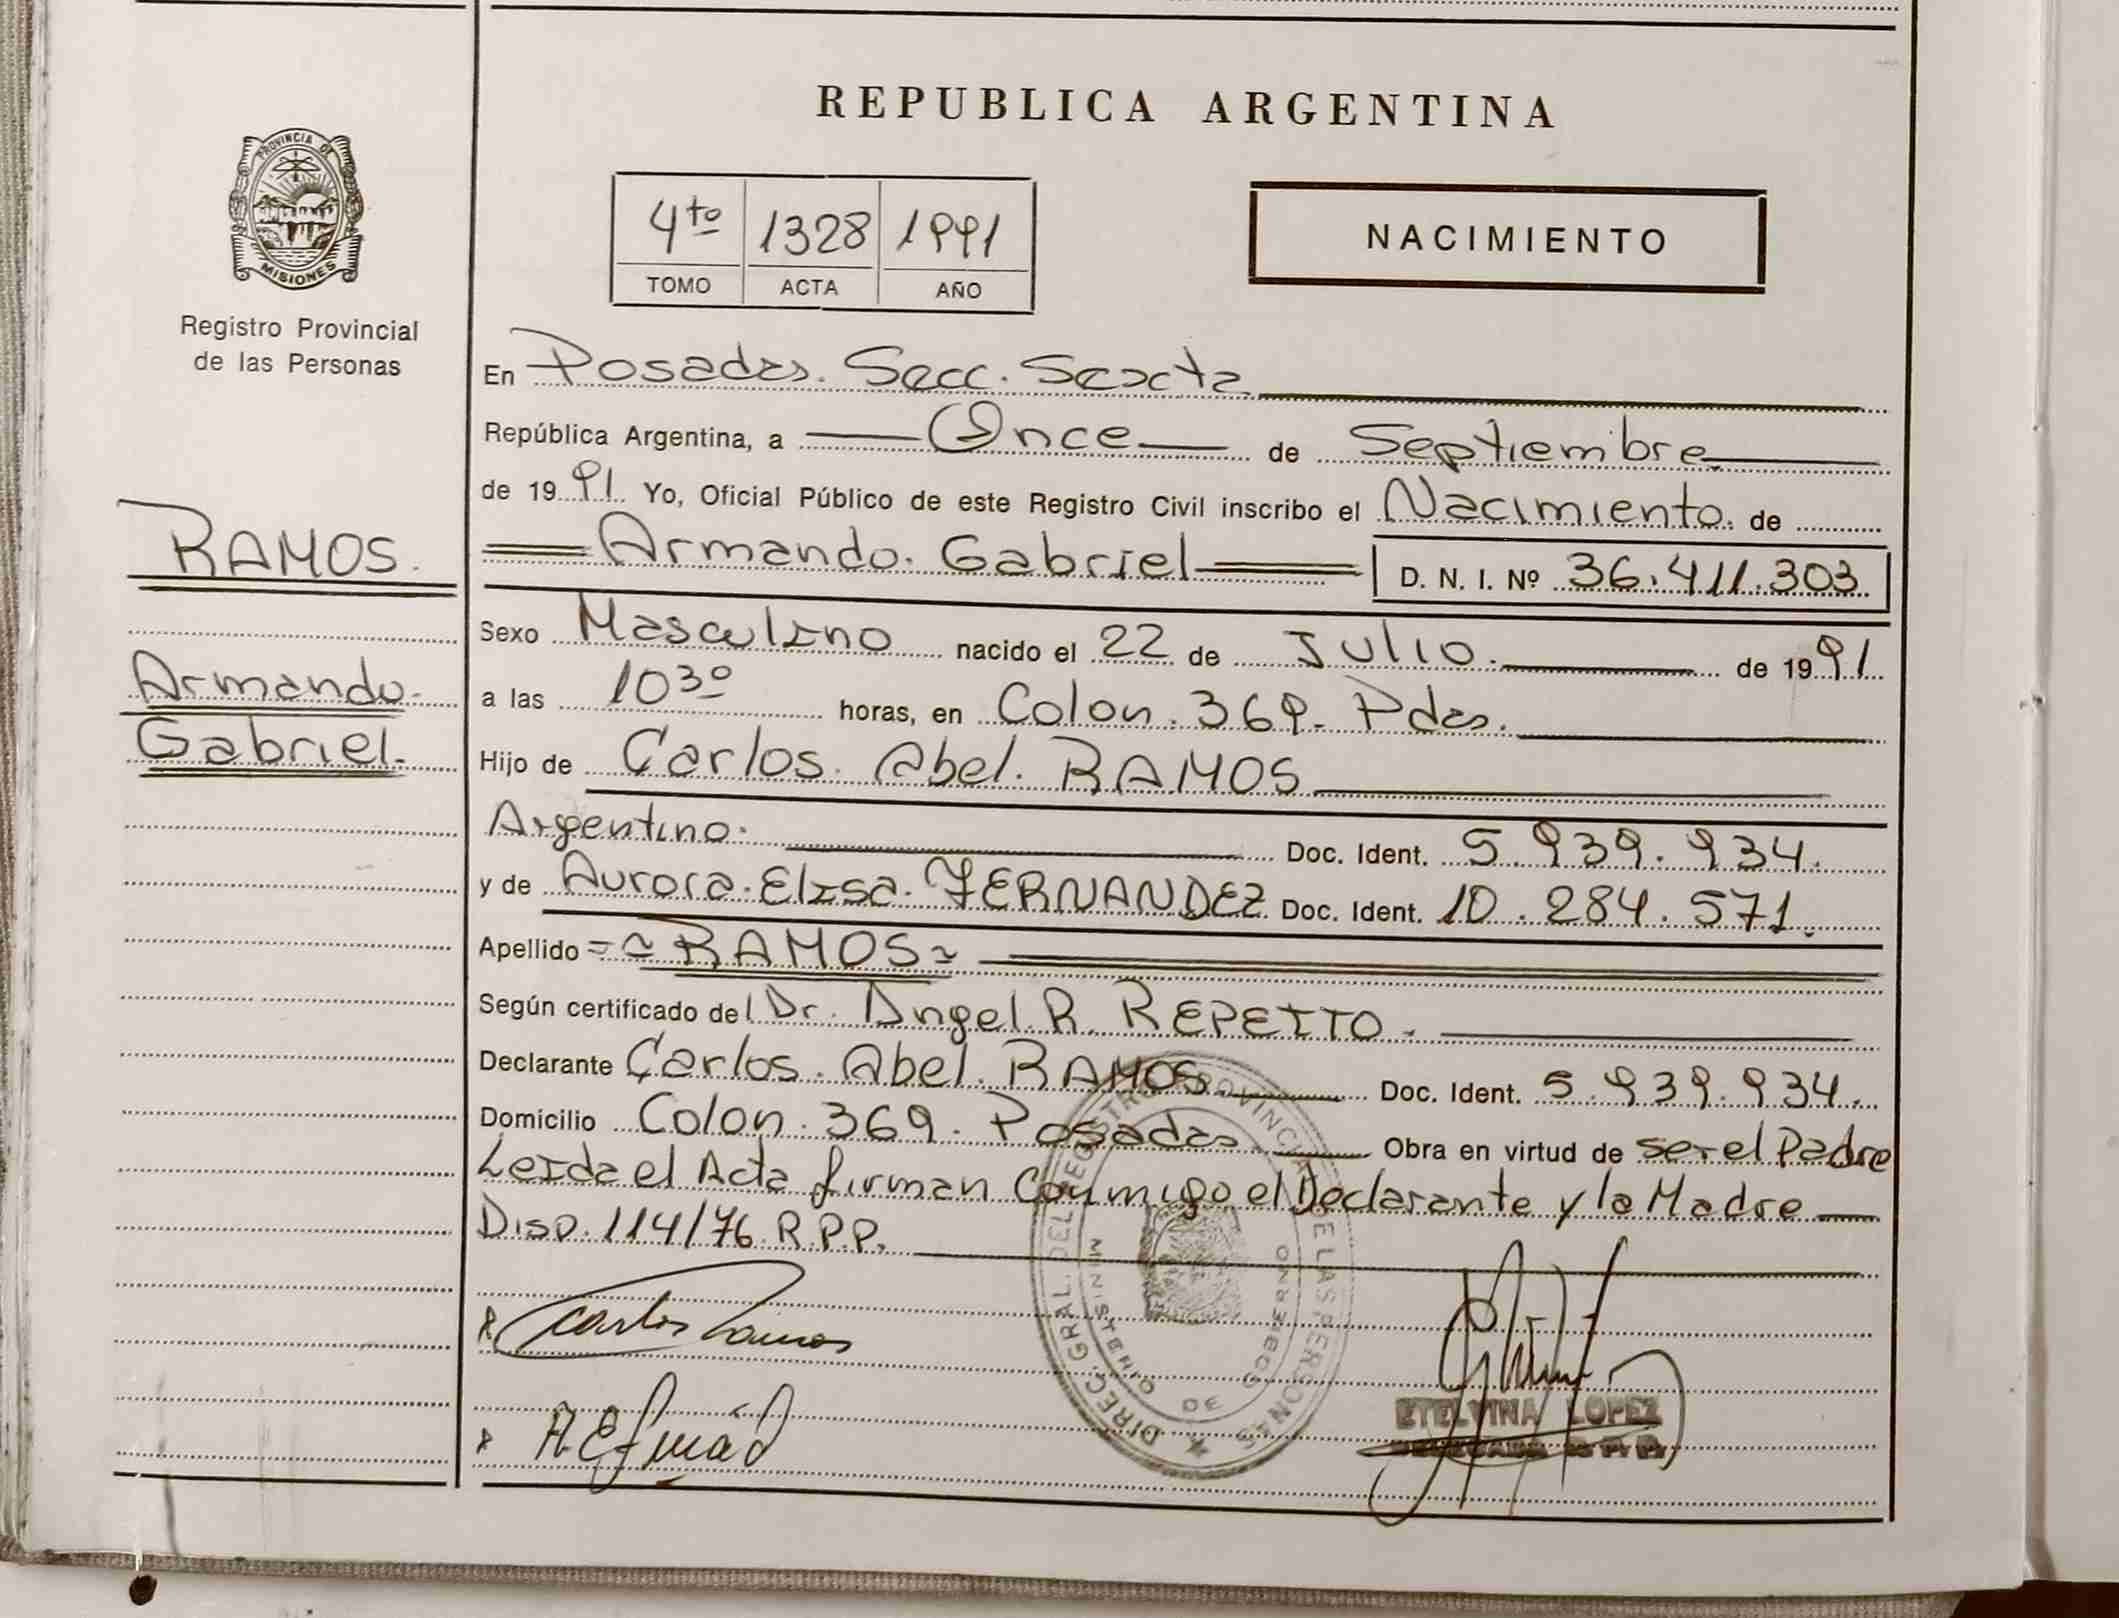 REPUBLICA ARGENTINA
PROVINCIA DE
MISIONES
Registro Provincial
de las Personas
4to 1328 1991
TOMO ACTA AÑO
NACIMIENTO
En Posadas. Secc. Sexta
República Argentina, a Once de Septiembre
de 1991 Yo, Oficial Público de este Registro Civil inscribo el Nacimiento. de
RAMOS.
Armando. Gabriel D. N. I. Nº 36.411.303
Sexo Masculino nacido el 22 de Julio. de 1991
Armando.
a las 10 30 horas, en Colon. 369. Pdas.
Gabriel.
Hijo de Carlos. Abel. RAMOS
Argentino. Doc. Ident. 5.939.934.
y de Aurora. Elisa. FERNANDEZ. Doc. Ident. 10.284.571.
Apellido = RAMOS
Según certificado del Dr. Angel. R. REPETTO.
Declarante Carlos. Abel. RAMOS. Doc. Ident. 5.939.934.
Domicilio Colon. 369. Posadas. Obra en virtud de ser el Padre
Leida el Acta firman Conmigo el Declarante y la Madre
Disp. 114/76. R.P.P.
DIREC. GRAL. DEL REGISTRO PROVINCIAL DE LAS PERSONAS
MINISTERIO DE GOBIERNO
Carlos Ramos
ETELVINA LOPEZ